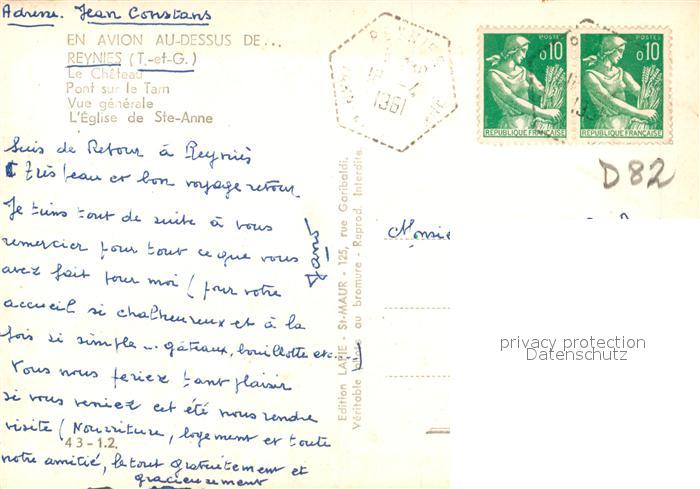 Adresse. Jean Constans
EN AVION AU-DESSUS DE...
REYNIES (T.-et-G.)
Le Château
Pont sur le Tarn
Vue générale
L'Église de Ste-Anne
Suis de Retour à Reyniès
Très beau et bon voyage retour
Je tiens tout de suite à vous
remercier pour tout ce que vous
avez fait pour moi (pour votre
accueil si chaleureux et à la
fois si simple ... gâteaux, bouillotte etc...)
Vous nous feriez tant plaisir
si vous veniez cet été nous rendre
visite (Nourriture, logement et toute
43-1.2.
notre amitié, le tout gratuitement et
gracieusement
Edition LAPIE - St-MAUR - 125, rue Garibaldi.
Véritable photo au bromure - Reprod. Interdite.
REYNIES
18 -4
1961
POSTES
0,10
REPUBLIQUE FRANÇAISE
POSTES
0,10
REPUBLIQUE FRANÇAISE
D82
Monsie
privacy protection
Datenschutz